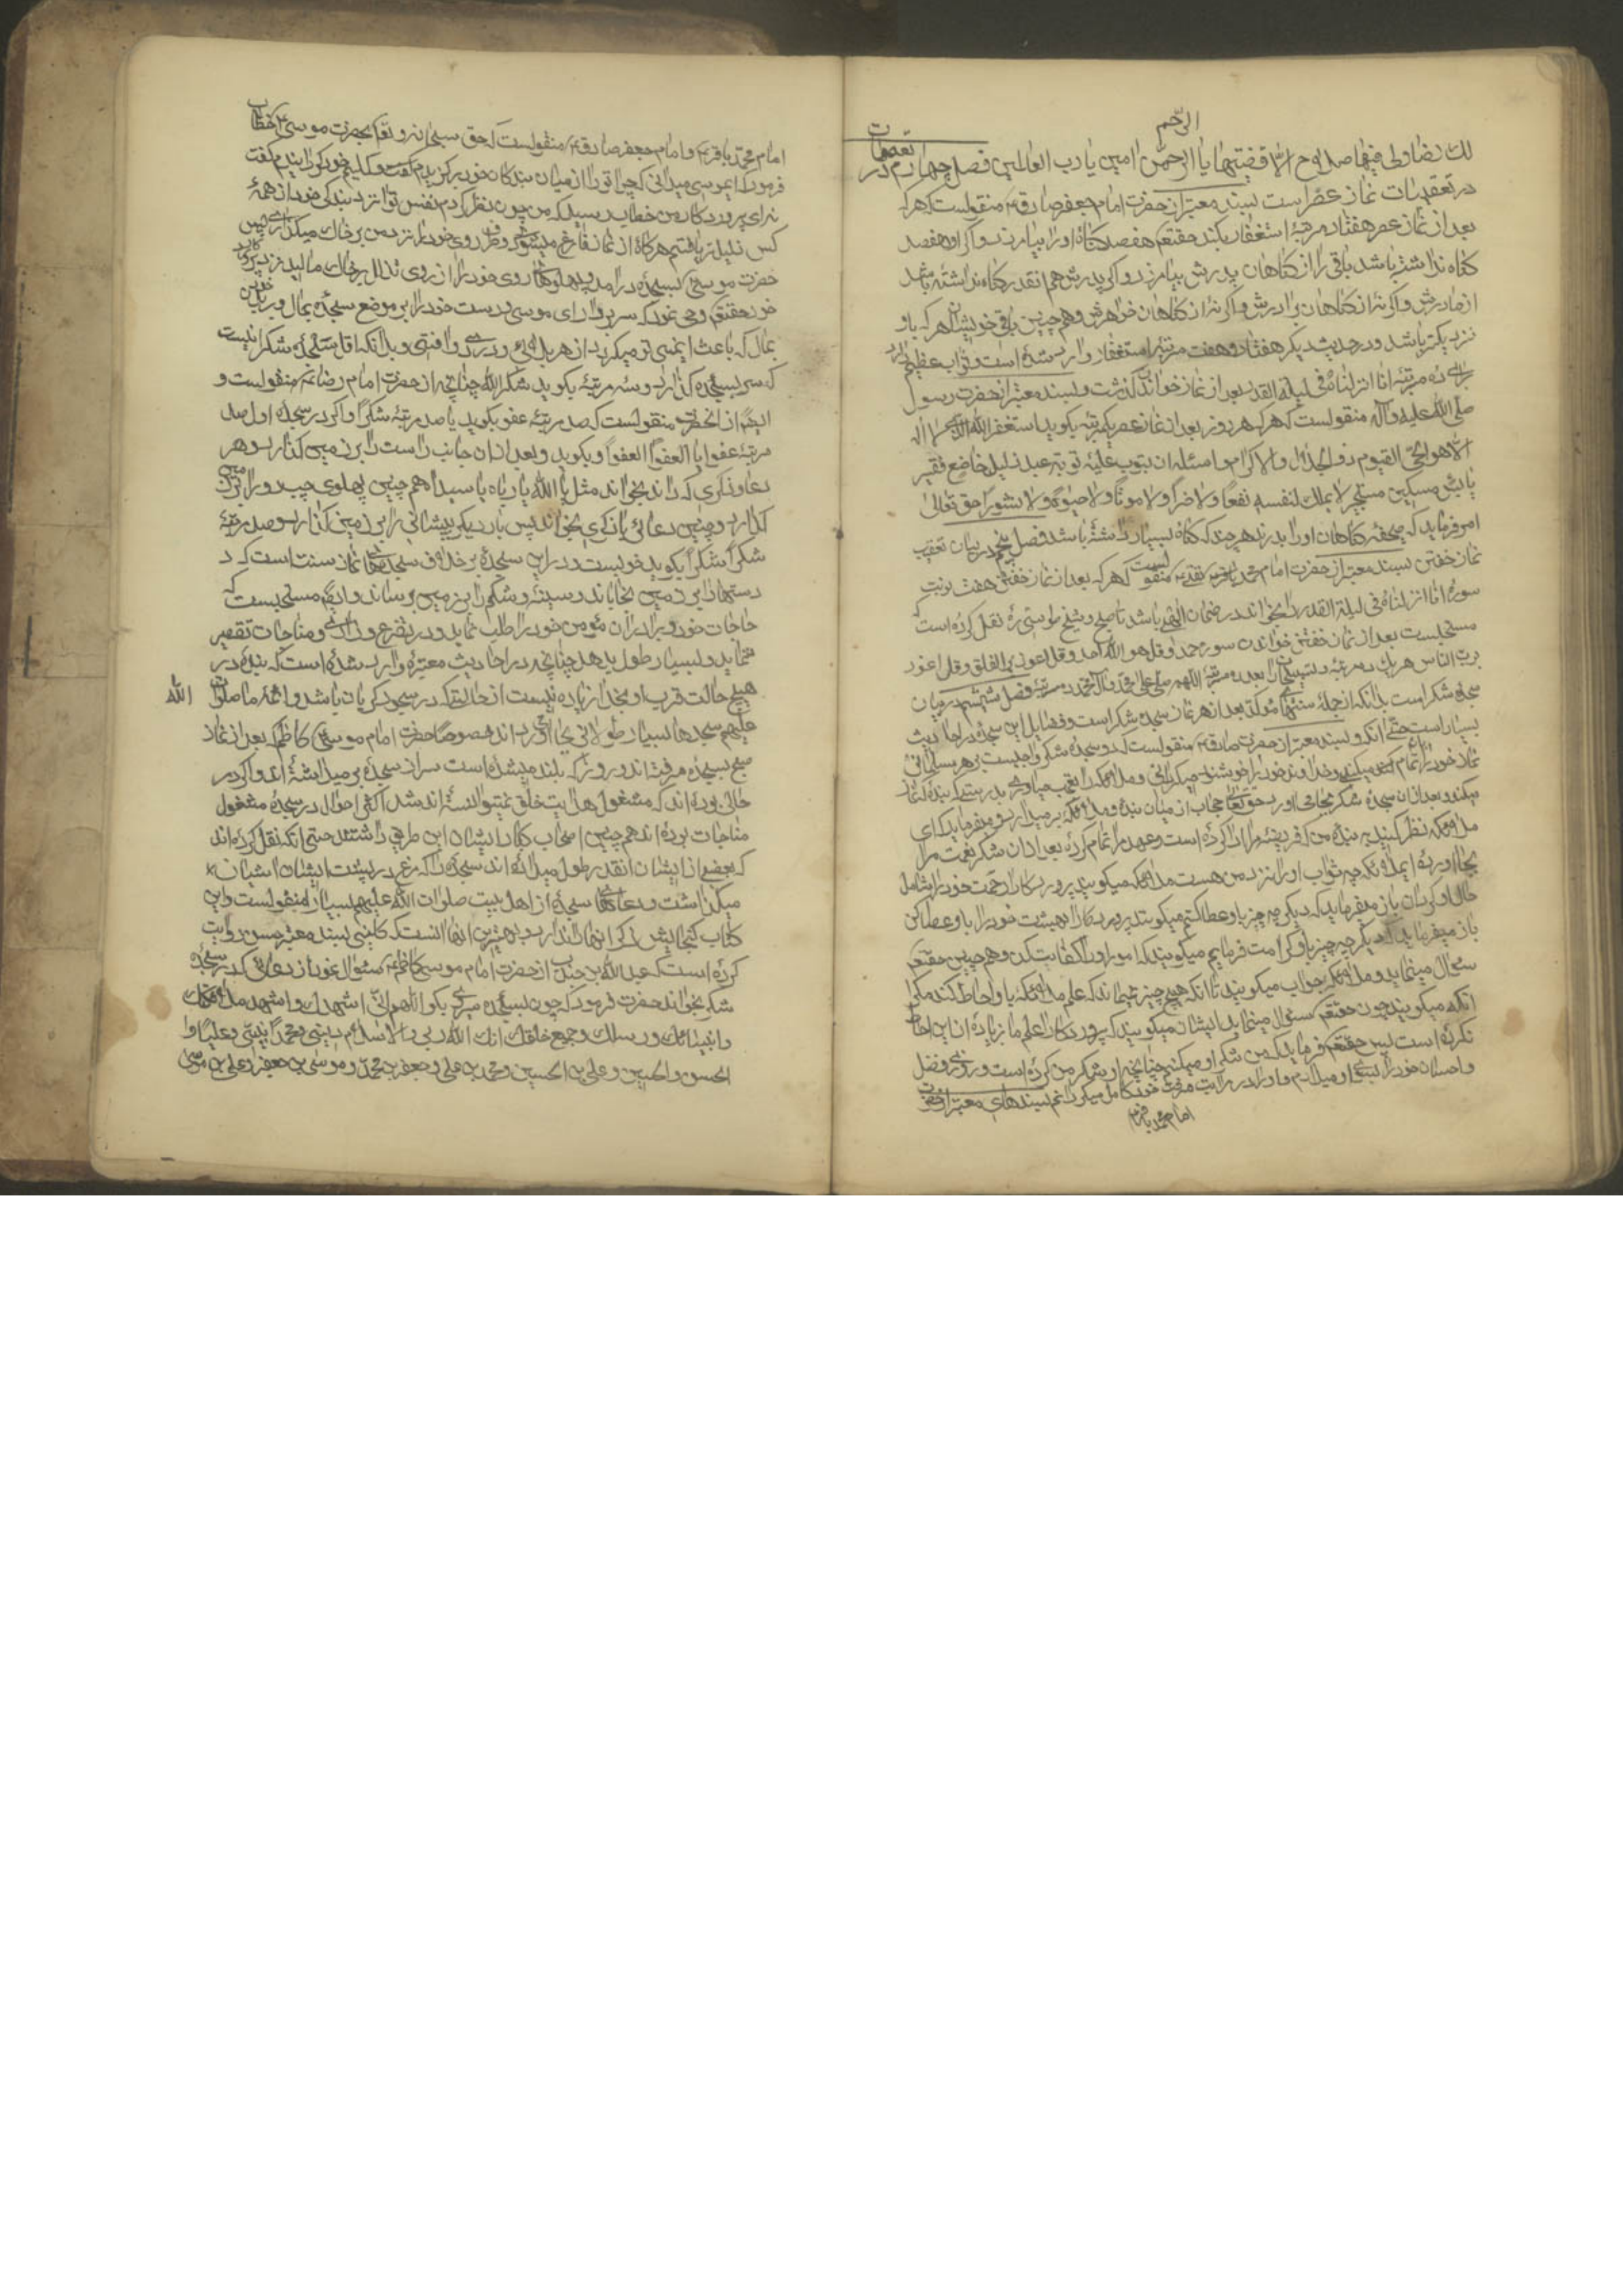 الرّحم
لك رضا ولی فیها صلاح الّا قضیتها یا ارحمن امین یا رب العالمین فصل چهارم در تعقیبات
در تعقیبات نماز عصر است بسند معتبر از حضرت امام جعفر صادق ع منقولست که هر که
بعد از نماز عصر هفتاد مرتبه استغفار بکند حقتعم هفصد کناه او را بیامرزد و اکر او هفصد
کناه نداشته باشد باقی را از کناهان پدرش بیامرزد و اکر پدرش هم انقدر کناه نداشته باشد
از مادرش و اکر نه از کناهان برادرش و اکر نه از کناهان خواهرش و همچنین باقی خویشان هر که باو
نزدیکتر باشد و در حدیث دیکر هفتاد و هفت مرتبه استغفار وارد شده است و ثواب عظیم دارد
ده مرتبه انا انزلناه فی لیلة القدر بعد از نماز خواندن کذشت و بسند معتبر از حضرت رسول
صلی الله علیه و آله منقولست که هر که هر روز بعد از نماز عصر یکمرتبه بکوید استغفر الله الذی لا اله
الا هو الحی القیوم ذو الجلال والاکرام و اسئله ان یتوب علیّه توبة عبد ذلیل خاضع فقیر
بائس مسکین مستجیر لا یملک لنفسه نفعًا ولا ضرًا ولا موتًا ولا حیوة ولا نشورًا حق تعالی
امر فرماید که صحیفه کناهان او را بدرند هر چند که کناه بسیار داشته باشد فصل پنجم در بیان تعقیب
نماز خفتن بسند معتبر از حضرت امام محمد باقر ع منقولست که هر که بعد از نماز خفتن هفت نوبت
سوره انا انزلناه فی لیلة القدر را بخواند در ضمان الهی باشد تا صبح و شیخ طوسی ره نقل کرده است که
مستحبست بعد از نماز خفتن خواندن سوره حمد و قل هو الله احد و قل اعوذ برب الفلق و قل اعوذ
برب الناس هر یک ده مرتبه و تسبیحات را بعد ده مرتبه اللهم صلی علی محمد وآل محمد ده مرتبه فصل ششم در بیان
سجده شکر است بدانکه از جمله سنتهای مؤکد بعد از هر نماز سجده شکر است و فضایل این سجده در احادیث
بسیار است و بسند معتبر از حضرت صادق ع منقولست که دو سجده شکر واجبست بر هر مسلمانی
نماز خود را تمام میکنی و خداوند خود را خوشنود میکردانی و ملائکه را بعجب میاوری بدرستیکه بنده که نماز
میکند و بعد از آن سجده شکر بجا می‌اورد حق تعالی حجاب از میان بنده و ملائکه بر میدارد و میفرماید که ای
ملائکه نظر کنید به بنده من که فریضه مرا ادا کرده است و عهد مرا تمام کرده بعد از آن شکر نعمت مرا
بجا اورده ای ملائکه چه ثواب او را نزد من هست ملائکه میکویند پروردکارا رحمت خود را شامل
حال او کردان باز میفرماید که دیکر چه چیز باو عطا کنم میکویند پروردکارا بهشت خود را باو عطا کن
باز میفرماید که دیکر چه چیز باو کرامت فرمایم میکویند که امور او را کفایت کن و همچنین حقتعم
سئوال مینماید و ملائکه جواب میکویند تا انکه هیچ چیز نماند که علم ملائکه باو احاطه کند مکر
انکه میکویند چون حقتعم سئوال مینماید ایشان میکویند که پروردکارا علم ما زیاده از این احاطه
نکرده است پس حقتعم فرماید که من شکر او میکنم چنانچه او شکر من کرده است و روزی فضل
و احسان خود را بسوی او میدارم و او را در مراتب معرفت خود کامل میکردانم بسندهای معتبر از حضرت
امام محمد باقر
امام محمد باقر ع و امام جعفر صادق ع منقولست که حق سبحانه و تعالی بحضرت موسی ع خطاب
فرمود که ایموسی میدانی که چرا تو را از میان بندکان خود برکزیدم و کلیم خود کردانیدم کفت
نه ای پروردکار من خطاب رسید که من چون نظر کردم نفس تو را نزد بندکی خود از همه
کس ذلیلتر یافتم هرکاه از نماز فارغ میشوی دو طرف روی خود را نزد من بر خاک میکذاری پس
حضرت موسی ع بسجده در امد و پهلوهای روی خود را از روی تذلل بر خاک مالید نزد پروردکار
خود حقتعم وحی نمود که سر بردار ای موسی و دست خود را بر موضع سجده بمال و بر بدن خویش
بمال که باعث ایمنی تو میکردد از هر بلائی و دردی و افتی و بدانکه اقل سجده شکر انیست
که سر بسجده کذارد و سه مرتبه بکوید شکرًا لله چنانچه از حضرت امام رضا ع منقولست و
ایضًا از انحضرت منقولست که صد مرتبه عفو بکوید یا صد مرتبه شکرًا و اکر در سجده اول صد
مرتبه عفوا یا العفو العفو بکوید و بعد از ان جانب راست را بر زمین کذارد و هر
دعا و ذکری که داند بخواند مثل یا الله یا رباه یا سیداه همچنین پهلوی چپ رو را بر زمین
کذارد و چنین دعائی یا ذکری بخواند پس بار دیکر پیشانی را بر زمین کذارد و صد مرتبه
شکرًا شکرًا بکوید خوبست و در این سجده بر خلاف سجده‌های نماز سنت است که د
دستها را بر زمین بخاباند و سینه و شکم را بر زمین برساند و ایضًا مستحبست که
حاجات خود و برادران مؤمن خود را طلب نماید و در تضرع و زاری و مناجات تقصیر
ننماید و بسیار طول بدهد چنانچه در احادیث معتبره وارد شده است که بنده در
هیچ حالت قرب او بخدا زیاده نیست از حالتیکه در سجود کریان باشد و ائمه ما صلوات الله
علیهم سجدها بسیار طولانی بجا آورده اند خصوصًا حضرت امام موسی کاظم ع که بعد از نماز
صبح بسجده میرفته اند و روز که بلند میشده است سر از سجده بر میداشته اند و اکر در
حالی بوده اند که مشغول هدایت خلق نمیتوانسته اند شد اکثر احوال در سجده مشغول
مناجات بوده اند همچنین اصحاب کبار ایشان این طریق داشتند حتی انکه نقل کرده اند
که بعضی از ایشان انقدر طول میداده اند سجده را که مرغ در پشت ایشان اشیان
میکذاشت و دعاهای سجده از اهل بیت صلوات الله علیهم بسیار منقولست و این
کتاب کنجایش ذکر انها ندارد و بهترین انها انست که کلینی بسند معتبر حسن روایت
کرده است که عبد الله بن جندب از حضرت امام موسی کاظم ع سئوال نمود از دعائی که در سجده
شکر بخواند حضرت فرمود که چون بسجده میروی بکو اللهم انّی اشهدک و اشهد ملائکتک
وانبیائک ورسلک وجمیع خلقک انک الله ربی والاسلام دینی ومحمدًا نبیّی وعلیًا و
الحسن والحسین وعلی بن الحسین ومحمد بن علی وجعفر بن محمد وموسی بن جعفر وعلی بن موسی